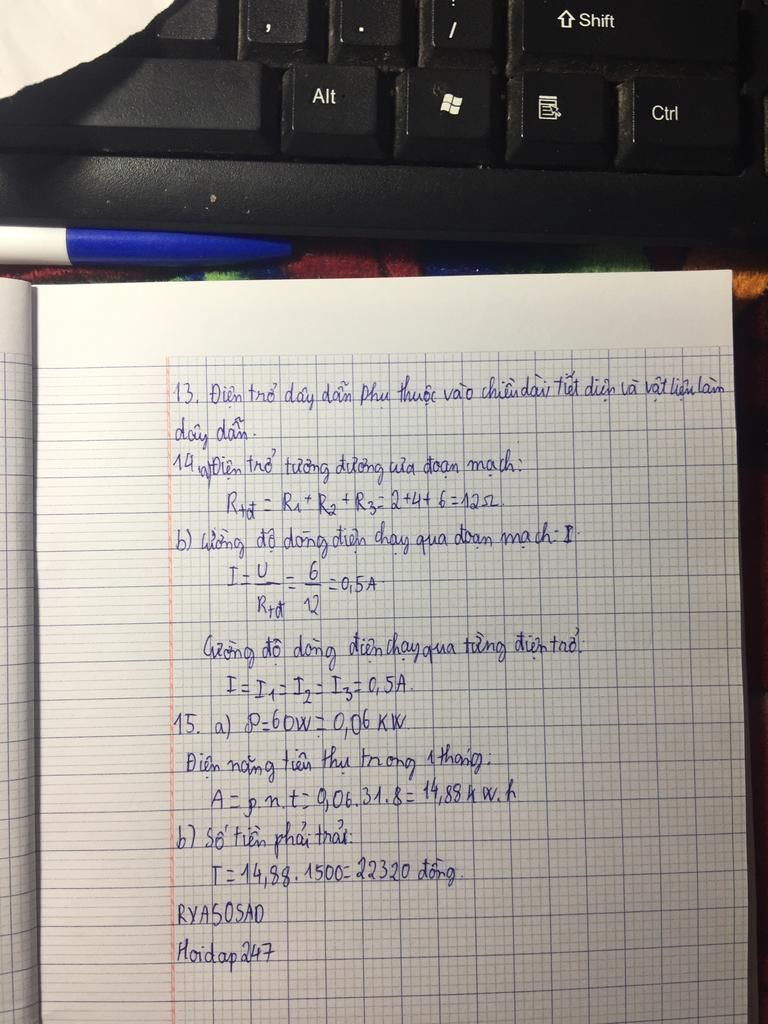 ,
.
/
Shift
Alt
Ctrl
13. Điện trở dây dẫn phụ thuộc vào chiều dài, tiết diện và vật liệu làm
dây dẫn.
14. a) Điện trở tương đương của đoạn mạch:
Rtđ = R1 + R2 + R3 = 2+4+6=12Ω.
b) Cường độ dòng điện chạy qua đoạn mạch: I
I = U/Rtđ = 6/12 = 0,5A
Cường độ dòng điện chạy qua từng điện trở:
I = I1 = I2 = I3 = 0,5A.
15. a) P=60W = 0,06 KW
Điện năng tiêu thụ trong 1 tháng:
A = p.n.t = 0,06.31.8 = 14,88 k W.h
b) Số tiền phải trả:
T = 14,88.1500 = 22320 đồng.
RYASOSAD
Hoidap247